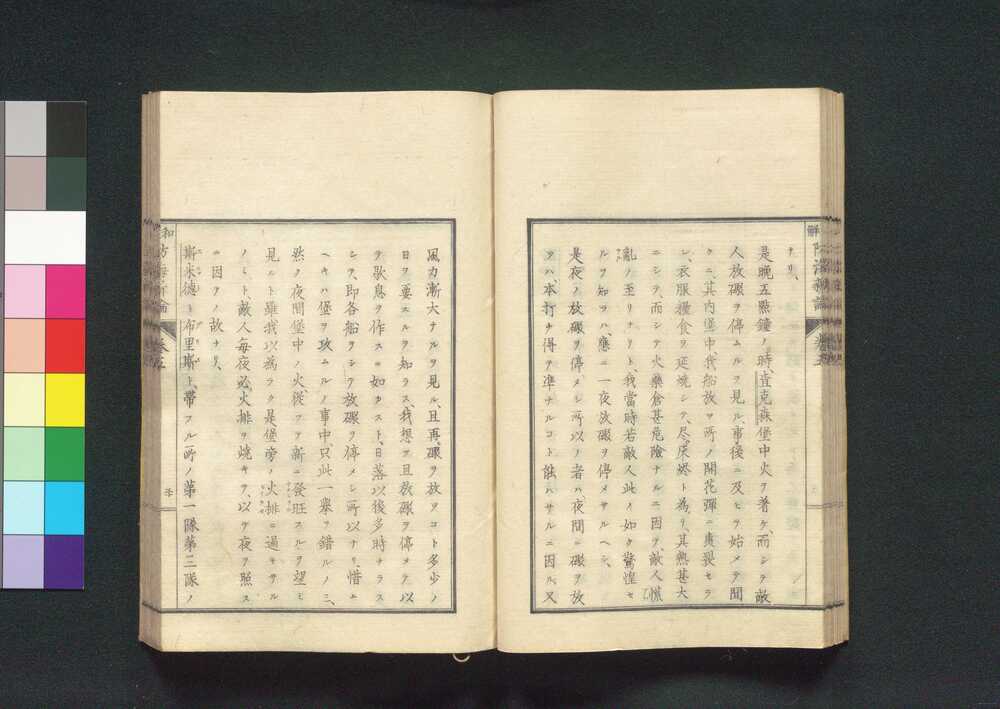 ナリ、
是晩五點鐘ノ時、査克森堡中火ヲ著ケ、而シテ敵
人放礮ヲ停ムルヲ見ル、事後ニ及ヒテ始メテ聞
クニ、其内堡中、我船放ツ所ノ開花彈ニ
シ、衣服糧食ヲ延燒シテ、尽ク灰燼ト爲リ、其熱甚大
ニシテ、而シテ火藥倉甚危險ナルニ因テ、敵人慌
亂ノ至リナリト、我當時若敵人此ノ如ク驚惶セ
ルヲ知ラハ、應ニ一夜放礮ヲ停メサルヘシ、
是夜ノ放礮ヲ停メシ所以ノ者ハ夜間ニ礮ヲ放
ツハ本打チ得テ準ナルコト能ハサルニ因ル、又
風力漸大ナルヲ見ル、且再礮ヲ放ツコト多少ノ
日ヲ要スルヲ知ラス、我想フ且放礮ヲ停メテ、以
テ歇息ヲ作スニ如カスト、日落以後多時ナラス
シテ、即各船ヲシテ放礮ヲ停メシ所以ナリ、惜ム
ヘキハ堡ヲ攻ムルノ事中、只此一擧ヲ錯ルノミ、
然ノ夜間堡中ノ火、從ツテ新ニ發旺スルヲ望ミ
見ルト雖我以爲ラク是堡旁ノ火排ニ過キサル
ノミト、敵人毎夜必火排ヲ燒キテ、以テ夜ヲ照ス
ニ因ノ故ナリ、
斯米德ト布里斯ト、帶フル所ノ第一隊第三隊ノ